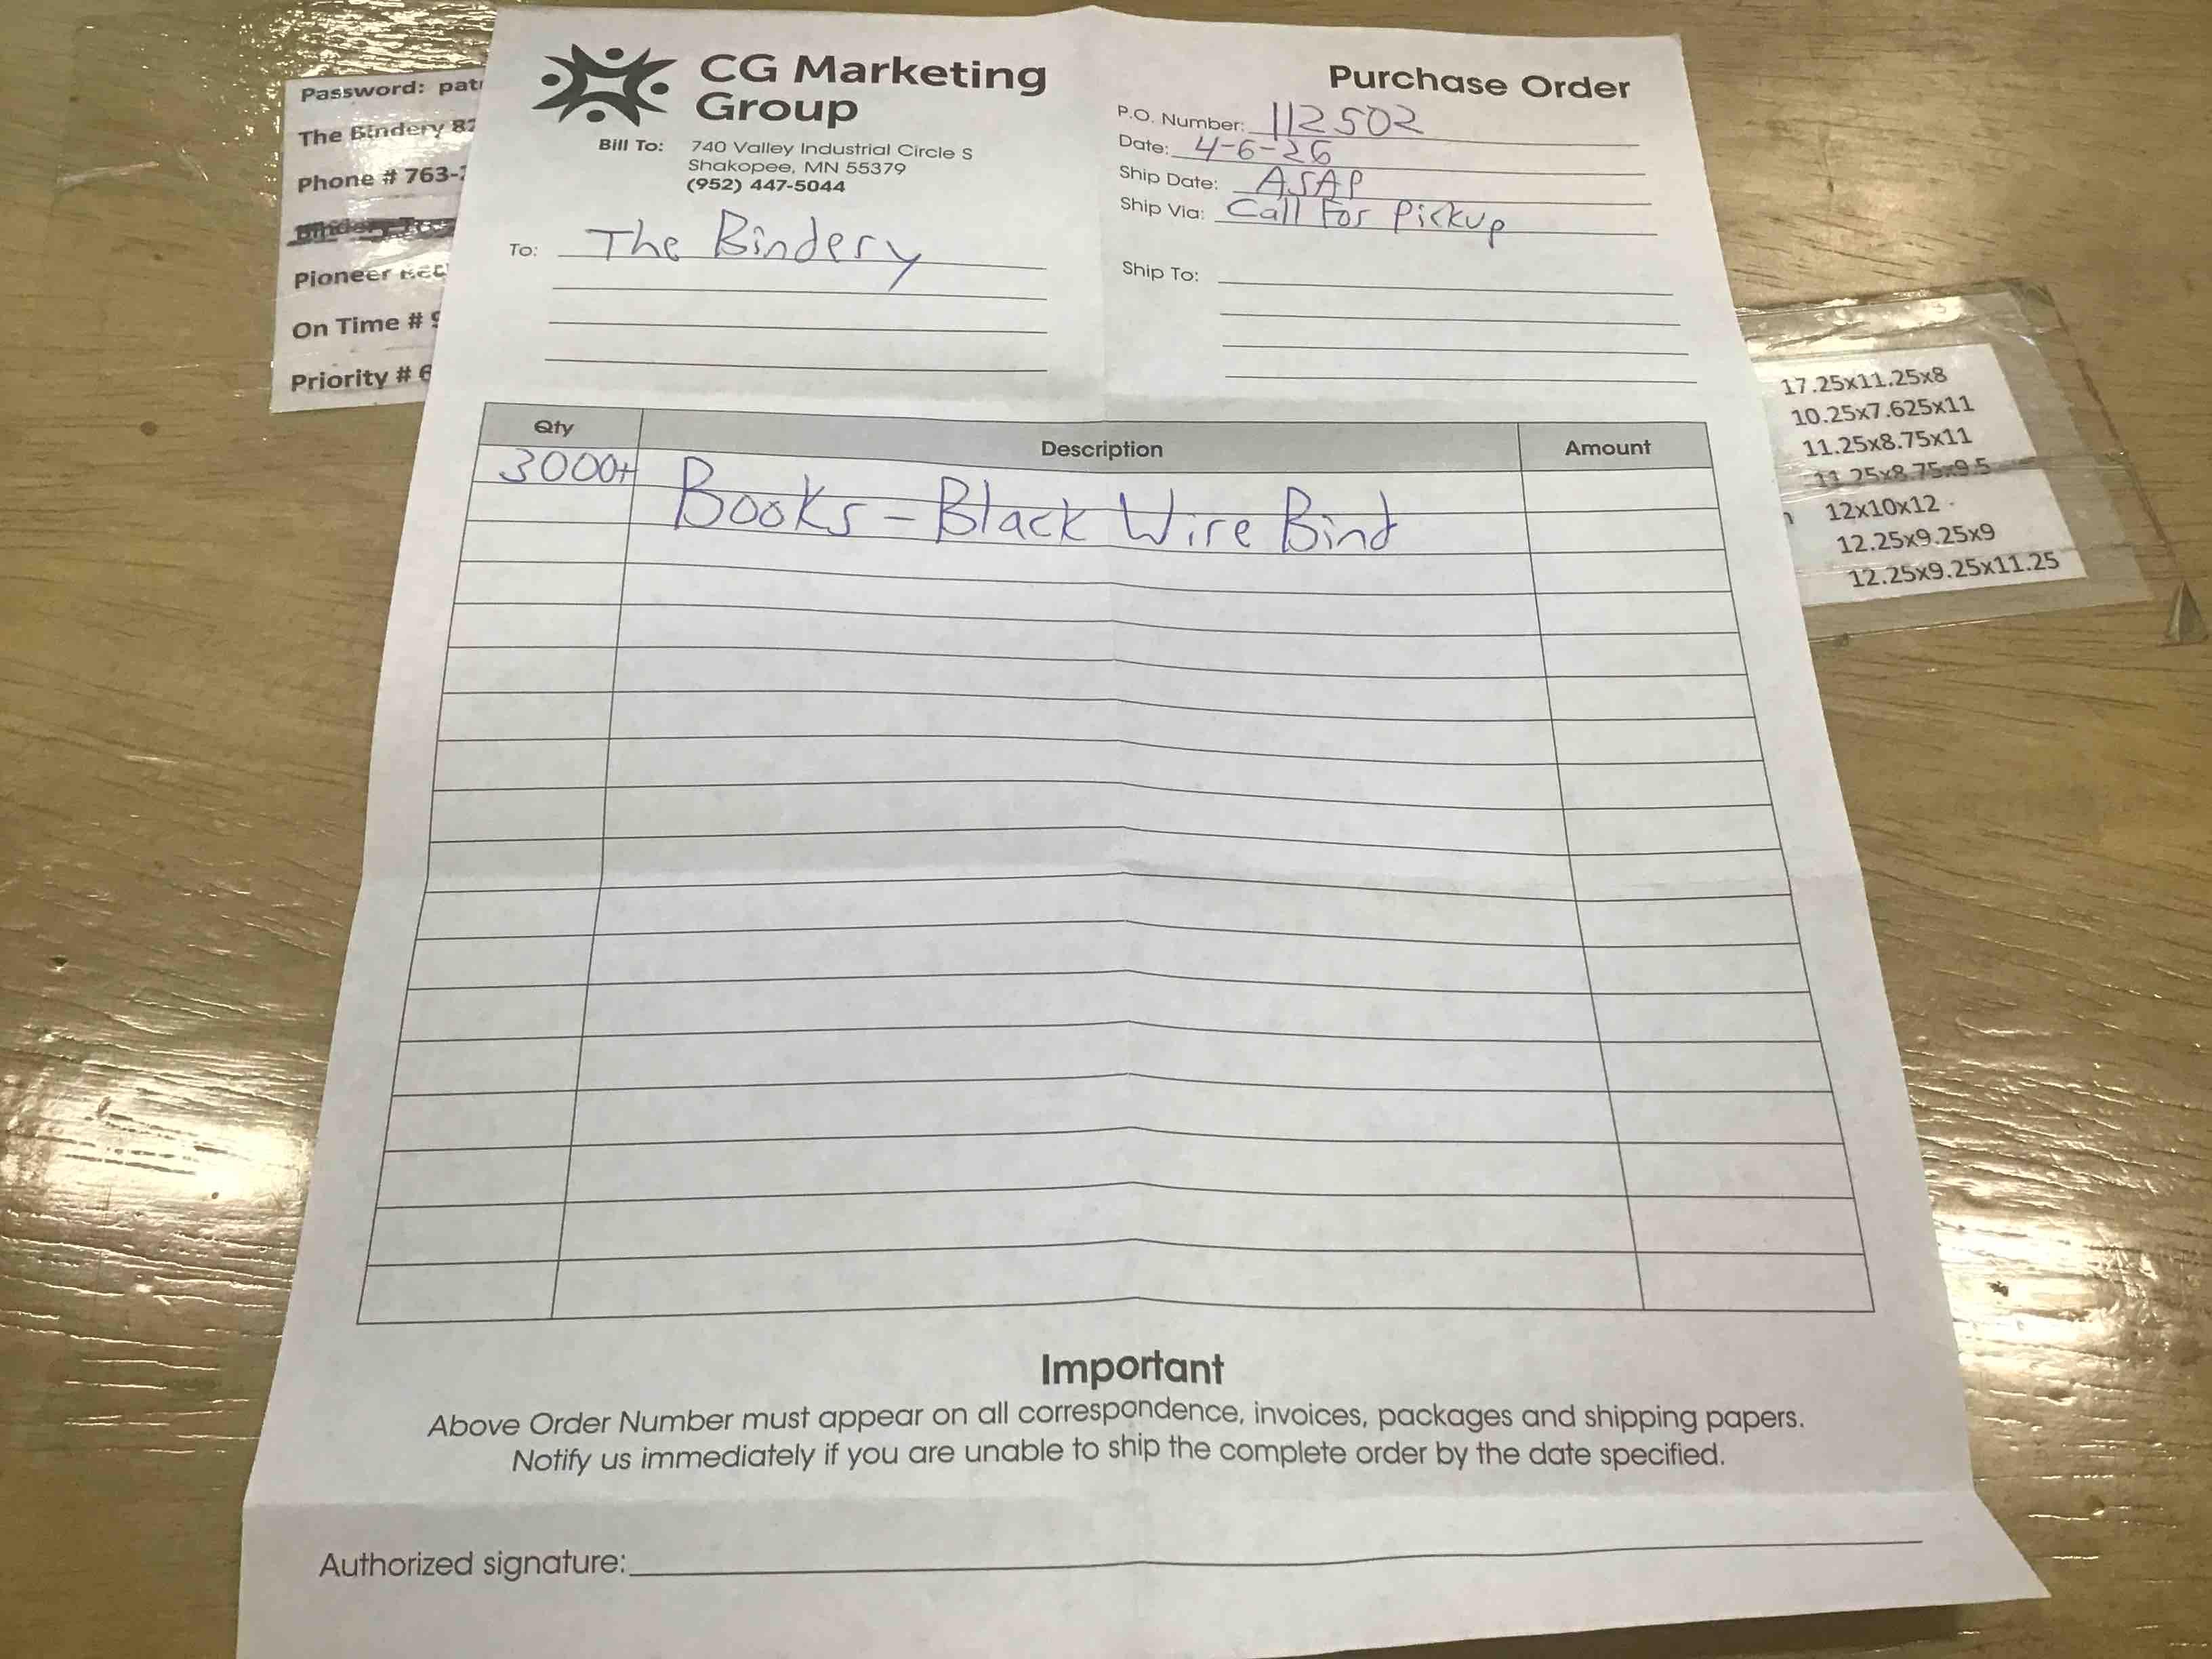 Password:
The Bindery
Phone # 763-
Pioneer
On Time #
Priority # 6
CG Marketing
Group
Bill To: 740 Valley Industrial Circle S
Shakopee, MN 55379
(952) 447-5044
To: The Bindery
Purchase Order
P.O. Number: 112502
Date: 4-6-26
Ship Date: ASAP
Ship Via: Call For Pickup
Ship To:
Qty Description Amount
3000+ Books - Black Wire Bind
Important
Above Order Number must appear on all correspondence, invoices, packages and shipping papers.
Notify us immediately if you are unable to ship the complete order by the date specified.
Authorized signature:
17.25x11.25x8
10.25x7.625x11
11.25x8.75x11
11.25x8.75x9.5
12x10x12
12.25x9.25x9
12.25x9.25x11.25